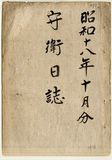 昭和十八年十月分
守衛日誌